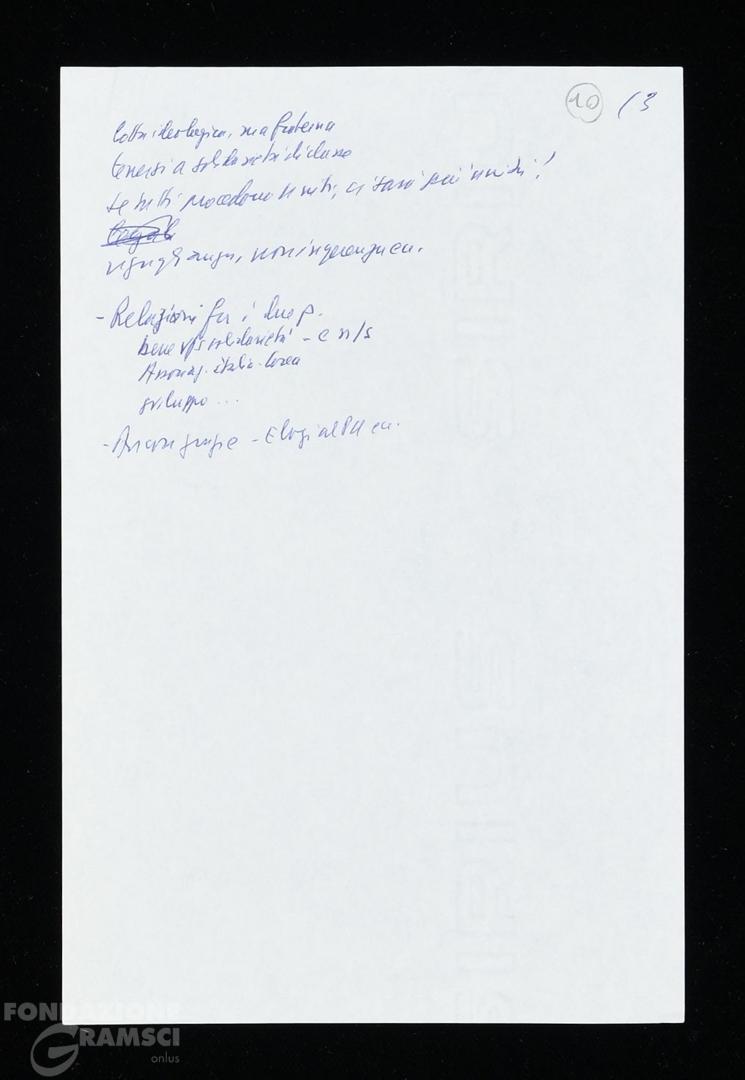 10 13
lotta ideologica, ma fraterna
tenersi a solidarietà di classe
se tutti procedono uniti, ci sarà più unità!
uguaglianza, non ingerenza ecc.
- Relazioni fra i due p.
bene vs/ solidarietà - e n/s
Associaz. Italia-Corea
sviluppo ...
- Ancora grazie - Elogi al PCI ecc.
FONDAZIONE
GRAMSCI
onlus